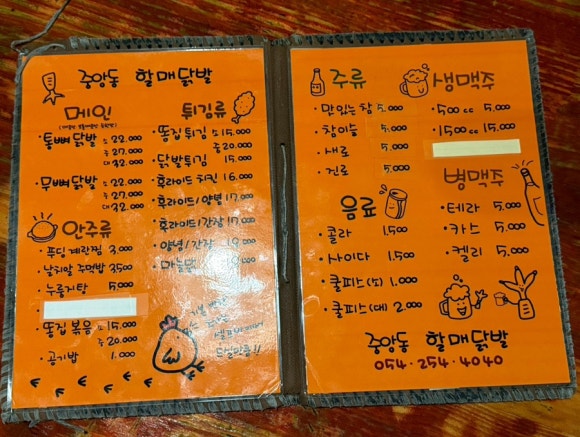 중앙동 할매닭발
메인
통뼈닭발 소 22.000
중 27.000
대 32.000
무뼈닭발 소 22.000
중 27.000
대 32.000
안주류
푸딩계란찜 3.000
날치알 주먹밥 3.500
누룽지탕 5.000
똥집 볶음 소 15.000
중 20.000
공기밥 1.000
튀김류
똥집튀김 소 15.000
중 20.000
닭발튀김 15.000
후라이드 치킨 16.000
후라이드/양념 17.000
후라이드/간장 17.000
양념/간장 18.000
주류
맛있는 참 5.000
참이슬 5.000
새로 5.000
진로 5.000
음료
콜라 1.500
사이다 1.500
쿨피스(소) 1.000
쿨피스(대) 2.000
생맥주
500 cc 5.000
1500 cc 15.000
병맥주
테라 5.000
카스 5.000
켈리 5.000
중앙동 할매닭발
054·254·4040